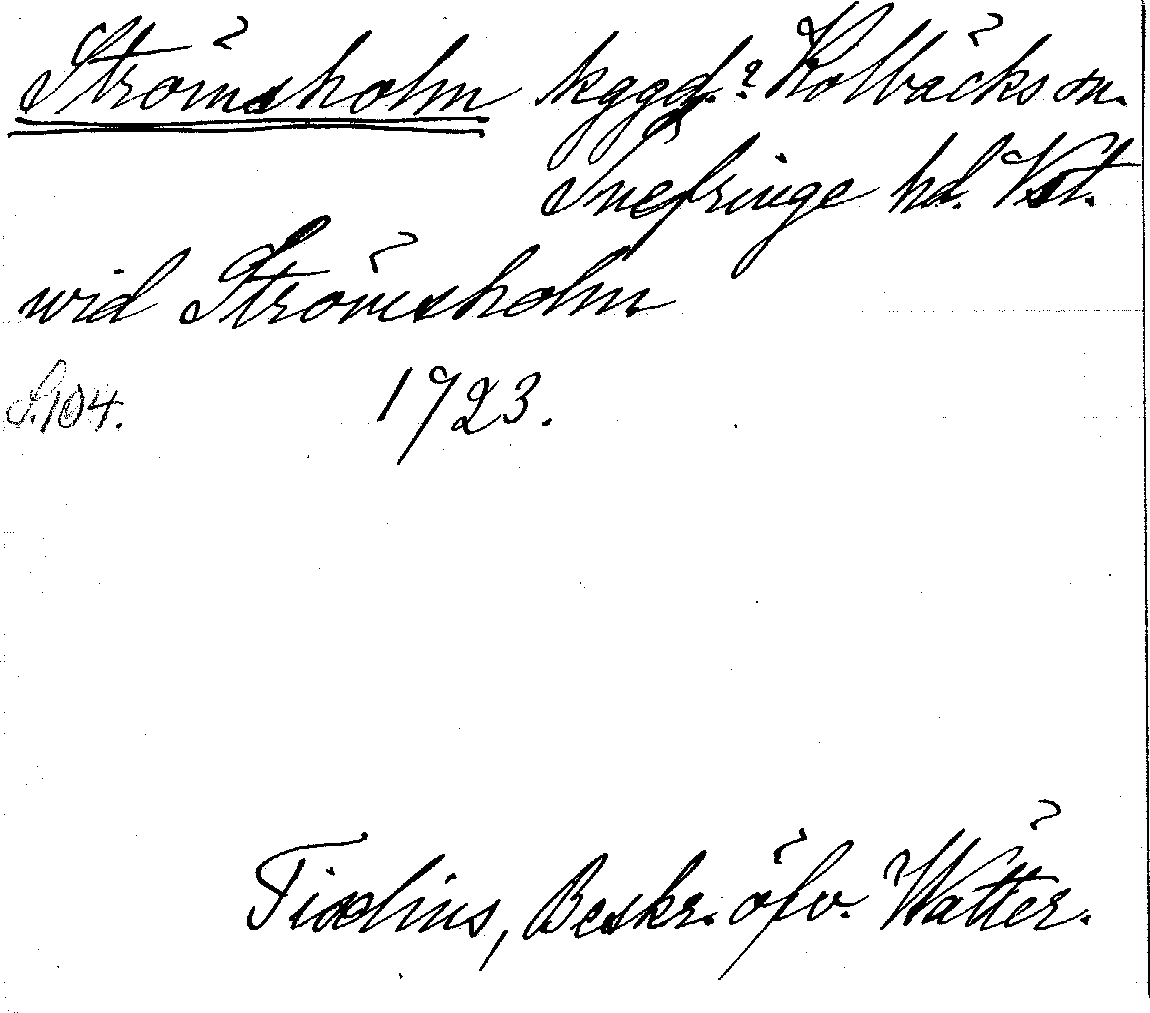 Strömsholm kggd.? Kolbäcks sn.
Snefringe hd. Vst.
wid Strömsholm
S. 104. 1723.
Tiselius, Beskr. öfv. Wätter.